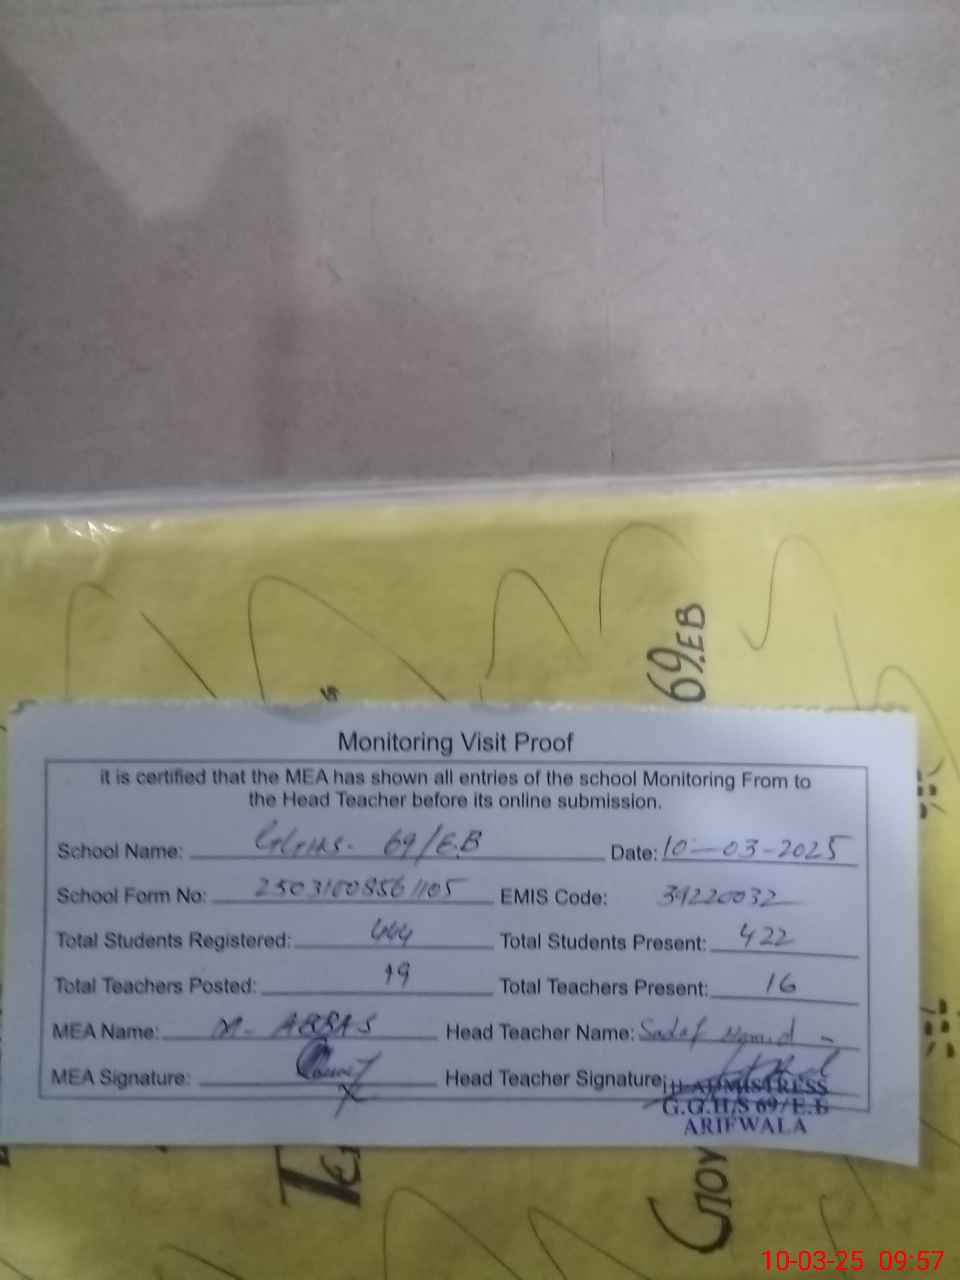 69.EB
Monitoring Visit Proof
it is certified that the MEA has shown all entries of the school Monitoring From to
the Head Teacher before its online submission.
School Name: GGHS. 69/E.B Date: 10-03-2025
School Form No: EMIS Code: 39220032
Total Students Registered: 444 Total Students Present: 422
Total Teachers Posted: 19 Total Teachers Present: 16
MEA Name: M. ABBAS Head Teacher Name: Sadaf Hamid
MEA Signature: Head Teacher Signature:
HEADMISTRESS
G.G.H/S 69/E.B
ARIFWALA
10-03-25 09:57